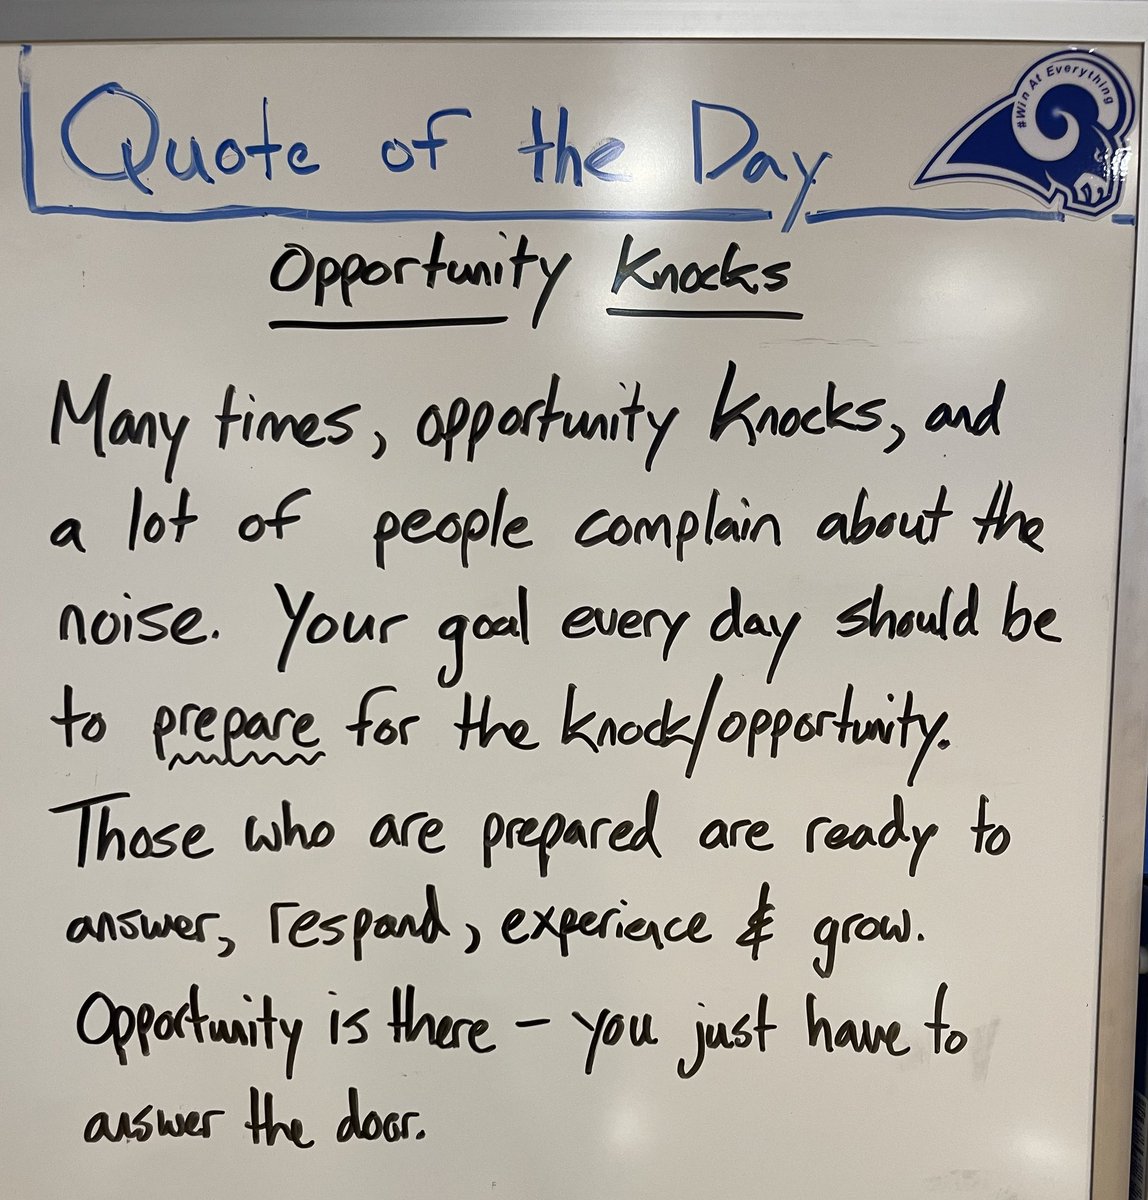 Quote of the Day
#Win At Everything
Opportunity Knocks
Many times, opportunity knocks, and
a lot of people complain about the
noise. Your goal every day should be
to prepare for the knock/opportunity.
Those who are prepared are ready to
answer, respond, experience & grow.
Opportunity is there – you just have to
answer the door.